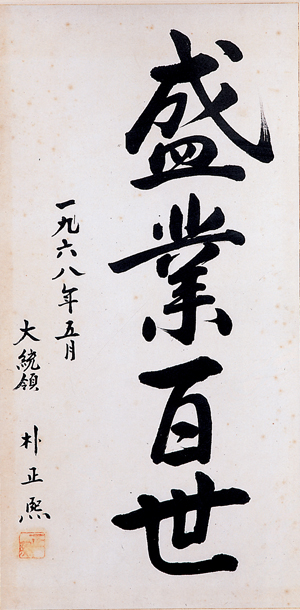 盛業百世
一九六八年五月
大統領 朴正熙